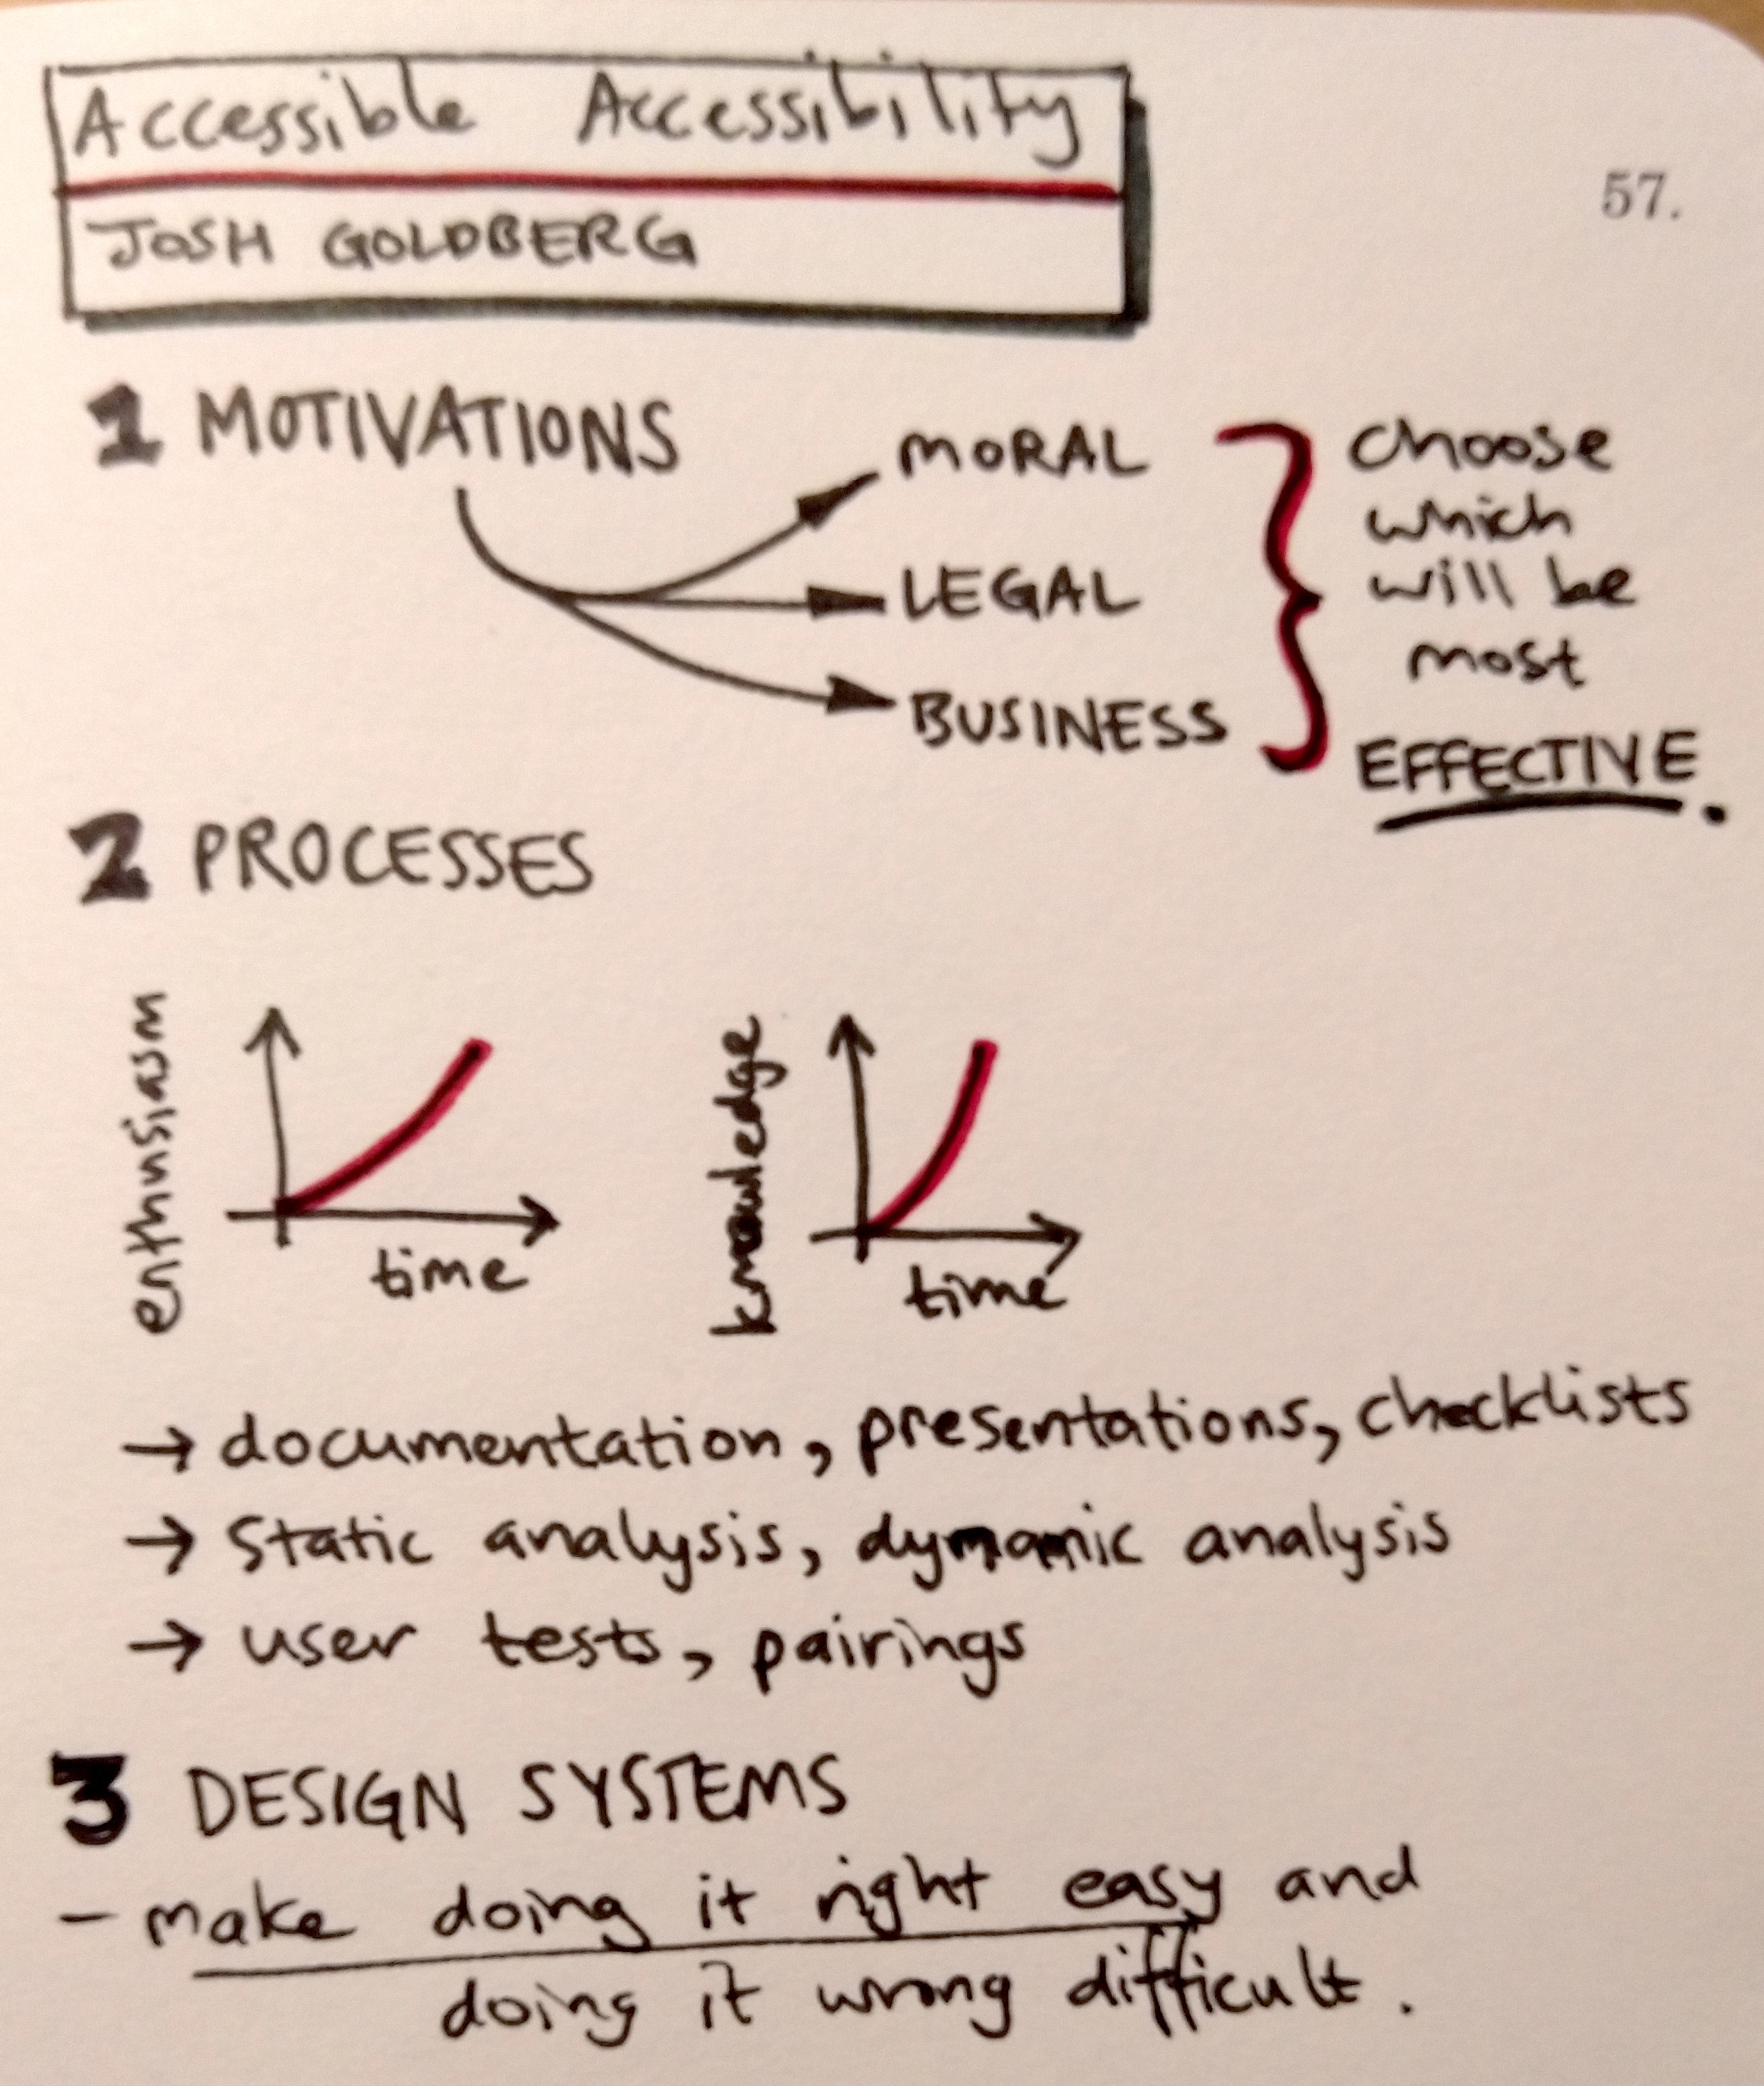 Accessible Accessibility
JOSH GOLDBERG
57.
1 MOTIVATIONS
MORAL
LEGAL
BUSINESS
choose
which
will be
most
EFFECTIVE.
2 PROCESSES
enthusiasm
time
knowledge
time
→ documentation, presentations, checklists
→ static analysis, dynamic analysis
→ user tests, pairings
3 DESIGN SYSTEMS
- make doing it right easy and
doing it wrong difficult.